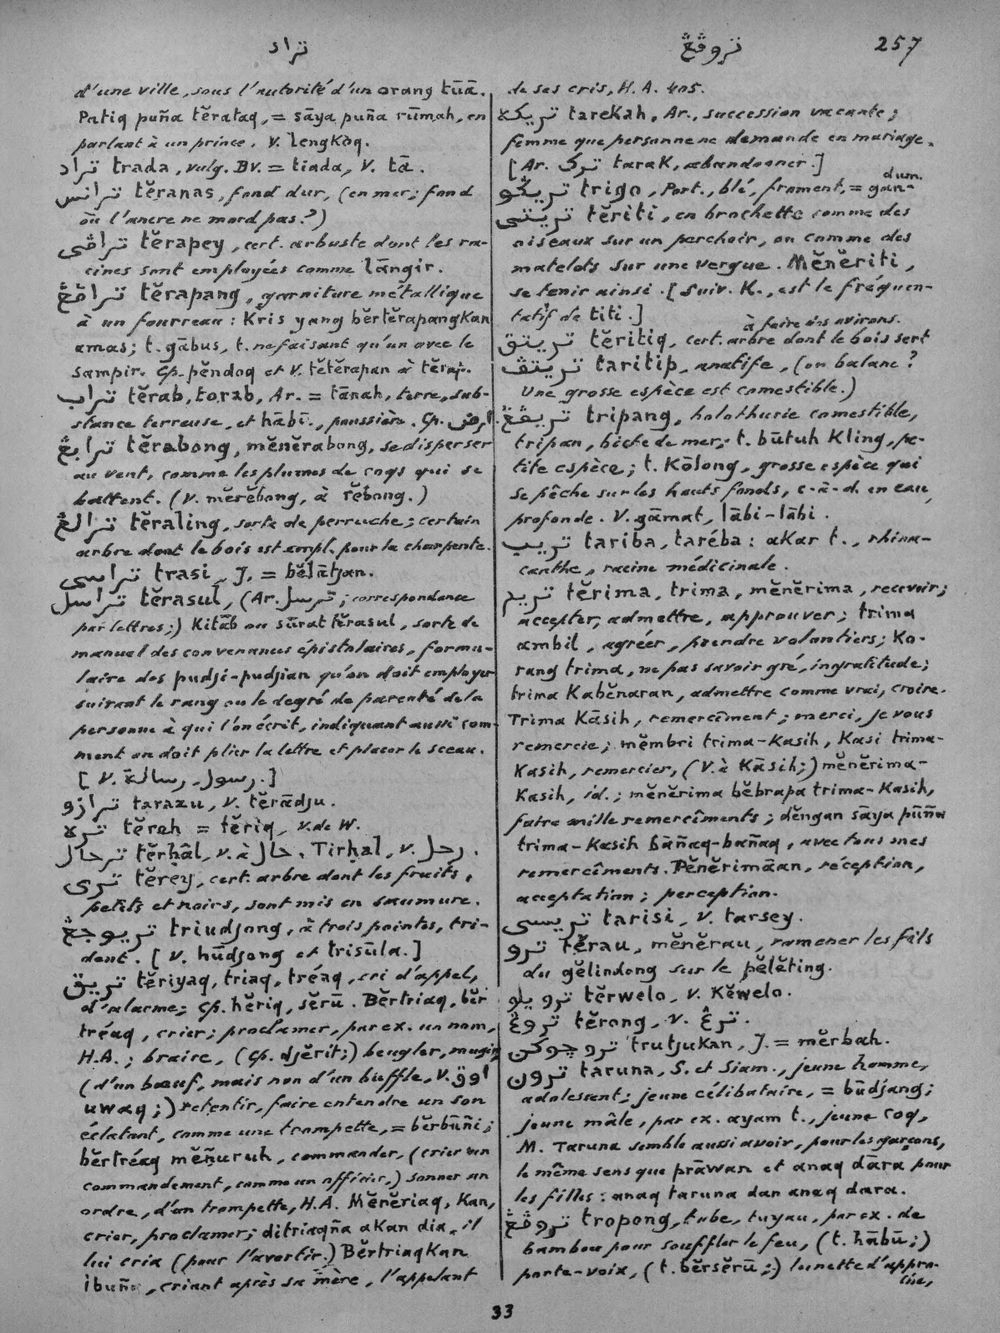 تراد
تروڤڠ
257
d'une ville, sous l'autorité d'un orang tūā.
Patiq puña tĕrataq, = sāya puña rūmah, en
parlant à un prince. V. lengkòq.
تراد trada, vulg. Bv. = tiada, V. tā.
ترانس tĕranas, fond dur, (en mer; fond
où l'ancre ne mord pas?)
تراڤى tĕrapey, cert. arbuste dont les ra-
cines sont employées comme lāngir.
تراڤڠ tĕrapang, garniture métallique
à un fourreau: Kris yang bĕrtĕrapangkan
amas; t. gābus, t. ne faisant qu'un avec le
sampir. Cp. pĕndoq et V. tĕtĕrapan à tĕrap.
تراب tĕrab, torab, Ar. = tānah, terre, sub-
stance terreuse, et hābi, poussière. Cp. ارض.
ترابڠ tĕrabong, mĕnĕrabong, se disperser
au vent, comme les plumes de coqs qui se
battent. (V. mĕrĕbong, à rĕbong.)
ترالڠ tĕraling, sorte de perruche; certain
arbre dont le bois est empl. pour la charpente.
تراسى trasi, J. = bĕlātjan.
تراسل tĕrasul, (Ar. ترسل; correspondance
par lettres;) Kitāb ou sūrat tĕrasul, sorte de
manuel des convenances épistolaires, formu-
laire des pudji-pudjian qu'on doit employer
suivant le rang ou le degré de parenté de la
personne à qui l'on écrit, indiquant aussi com-
ment on doit plier la lettre et placer le sceau.
[V. رسول, رسالة.]
ترازو tarazu, V. tĕrādju.
تره tĕrah = tĕriq, V. de W.
ترحال tĕrḥāl, V. à حال. Tirḥal, V. رحل.
ترى tĕrey, cert. arbre dont les fruits,
petits et noirs, sont mis en saumure.
تريوجڠ triudjong, à trois pointes, tri-
dent. [V. hūdjong et trisūla.]
تريق tĕriyaq, triaq, tréaq, cri d'appel,
d'alarme; Cp. hĕriq, sĕrū. Bĕrtriaq, bĕr
tréaq, crier; proclamer, par ex. un nom,
H.A.; braire, (Cp. djĕrit;) beugler, mugir
(d'un bœuf, mais non d'un buffle, V. اوق
uwaq;) retentir, faire entendre un son
éclatant, comme une trompette, = bĕrbūñi;
bĕrtréaq mĕñuruh, commander, (crier un
commandement, comme un officier.) sonner un
ordre, d'un trompette, H.A. Mĕnĕriaq, Kan,
crier, proclamer; ditriaqña akan dia, il
lui cria (pour l'avertir.) Bĕrtriaqkan
ibuña, criant après sa mère, l'appelant
de ses cris, H.A. 405.
تريكه tarekah, Ar., succession vacante;
femme que personne ne demande en mariage.
[Ar. ترك tarak, abandonner.]
تريڬو trigo, Port., blé, froment, = gan-
dum.
تريتى tĕriti, en brochette comme des
oiseaux sur un perchoir, ou comme des
matelots sur une vergue. Mĕnĕriti,
se tenir ainsi. [Suiv. K., est le fréquen-
tatif de titi.]
à faire des avirons.
تريتق tĕritiq, cert. arbre dont le bois sert
تريتڤ taritip, anatife, (ou balane?
Une grosse espèce est comestible.)
تريڤڠ tripang, holothurie comestible,
tripan, biche de mer; t. būtuh Kling, pe-
tite espèce; t. Kōlong, grosse espèce qui
se pêche sur les hauts fonds, c-à-d. en eau
profonde. V. gāmat, lābi-lābi.
تريب tariba, taréba: akar t., rhina-
canthe, racine médicinale.
تريم tĕrima, trima, mĕnĕrima, recevoir;
accepter, admettre, approuver; trima
ambil, agréer, prendre volontiers; Ko-
rang trima, ne pas savoir gré, ingratitude;
trima Kabĕnaran, admettre comme vrai, croire.
Trima Kāsih, remercîment; merci, je vous
remercie; mĕmbri trima-Kasih, Kasi trima-
Kasih, remercier, (V. à Kāsih;) mĕnĕrima-
Kasih, id.; mĕnĕrima bĕbrapa trima-Kasih,
faire mille remercîments; dĕngan sāya pūña
trima-Kasih bàñaq-bañaq, avec tous mes
remercîments. Pĕnĕrimāan, réception,
acceptation; perception.
تريسى tarisi, V. tarsey.
ترو tĕrau, mĕnĕrau, ramener les fils
du gĕlindong sur le pĕlĕting.
ترويلو tĕrwelo, V. Kĕwelo.
تروڠ tĕrong, V. ترڠ.
تروجوكن trutjukan, J. = mĕrbah.
ترون taruna, S. et Siam., jeune homme,
adolescent; jeune célibataire, = būdjang;
jeune mâle, par ex. ayam t., jeune coq,
M. Taruna semble aussi avoir, pour les garçons,
le même sens que prawan et anaq dāra pour
les filles: anaq taruna dan anaq dara.
تروڤڠ tropong, tube, tuyau, par ex. de
bambou pour souffler le feu, (t. hābū;)
porte-voix, (t. bĕrsĕrū;) lunette d'appro-
che,
33